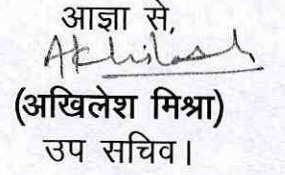 आज्ञा से,
Akhilesh
(अखिलेश मिश्रा)
उप सचिव।